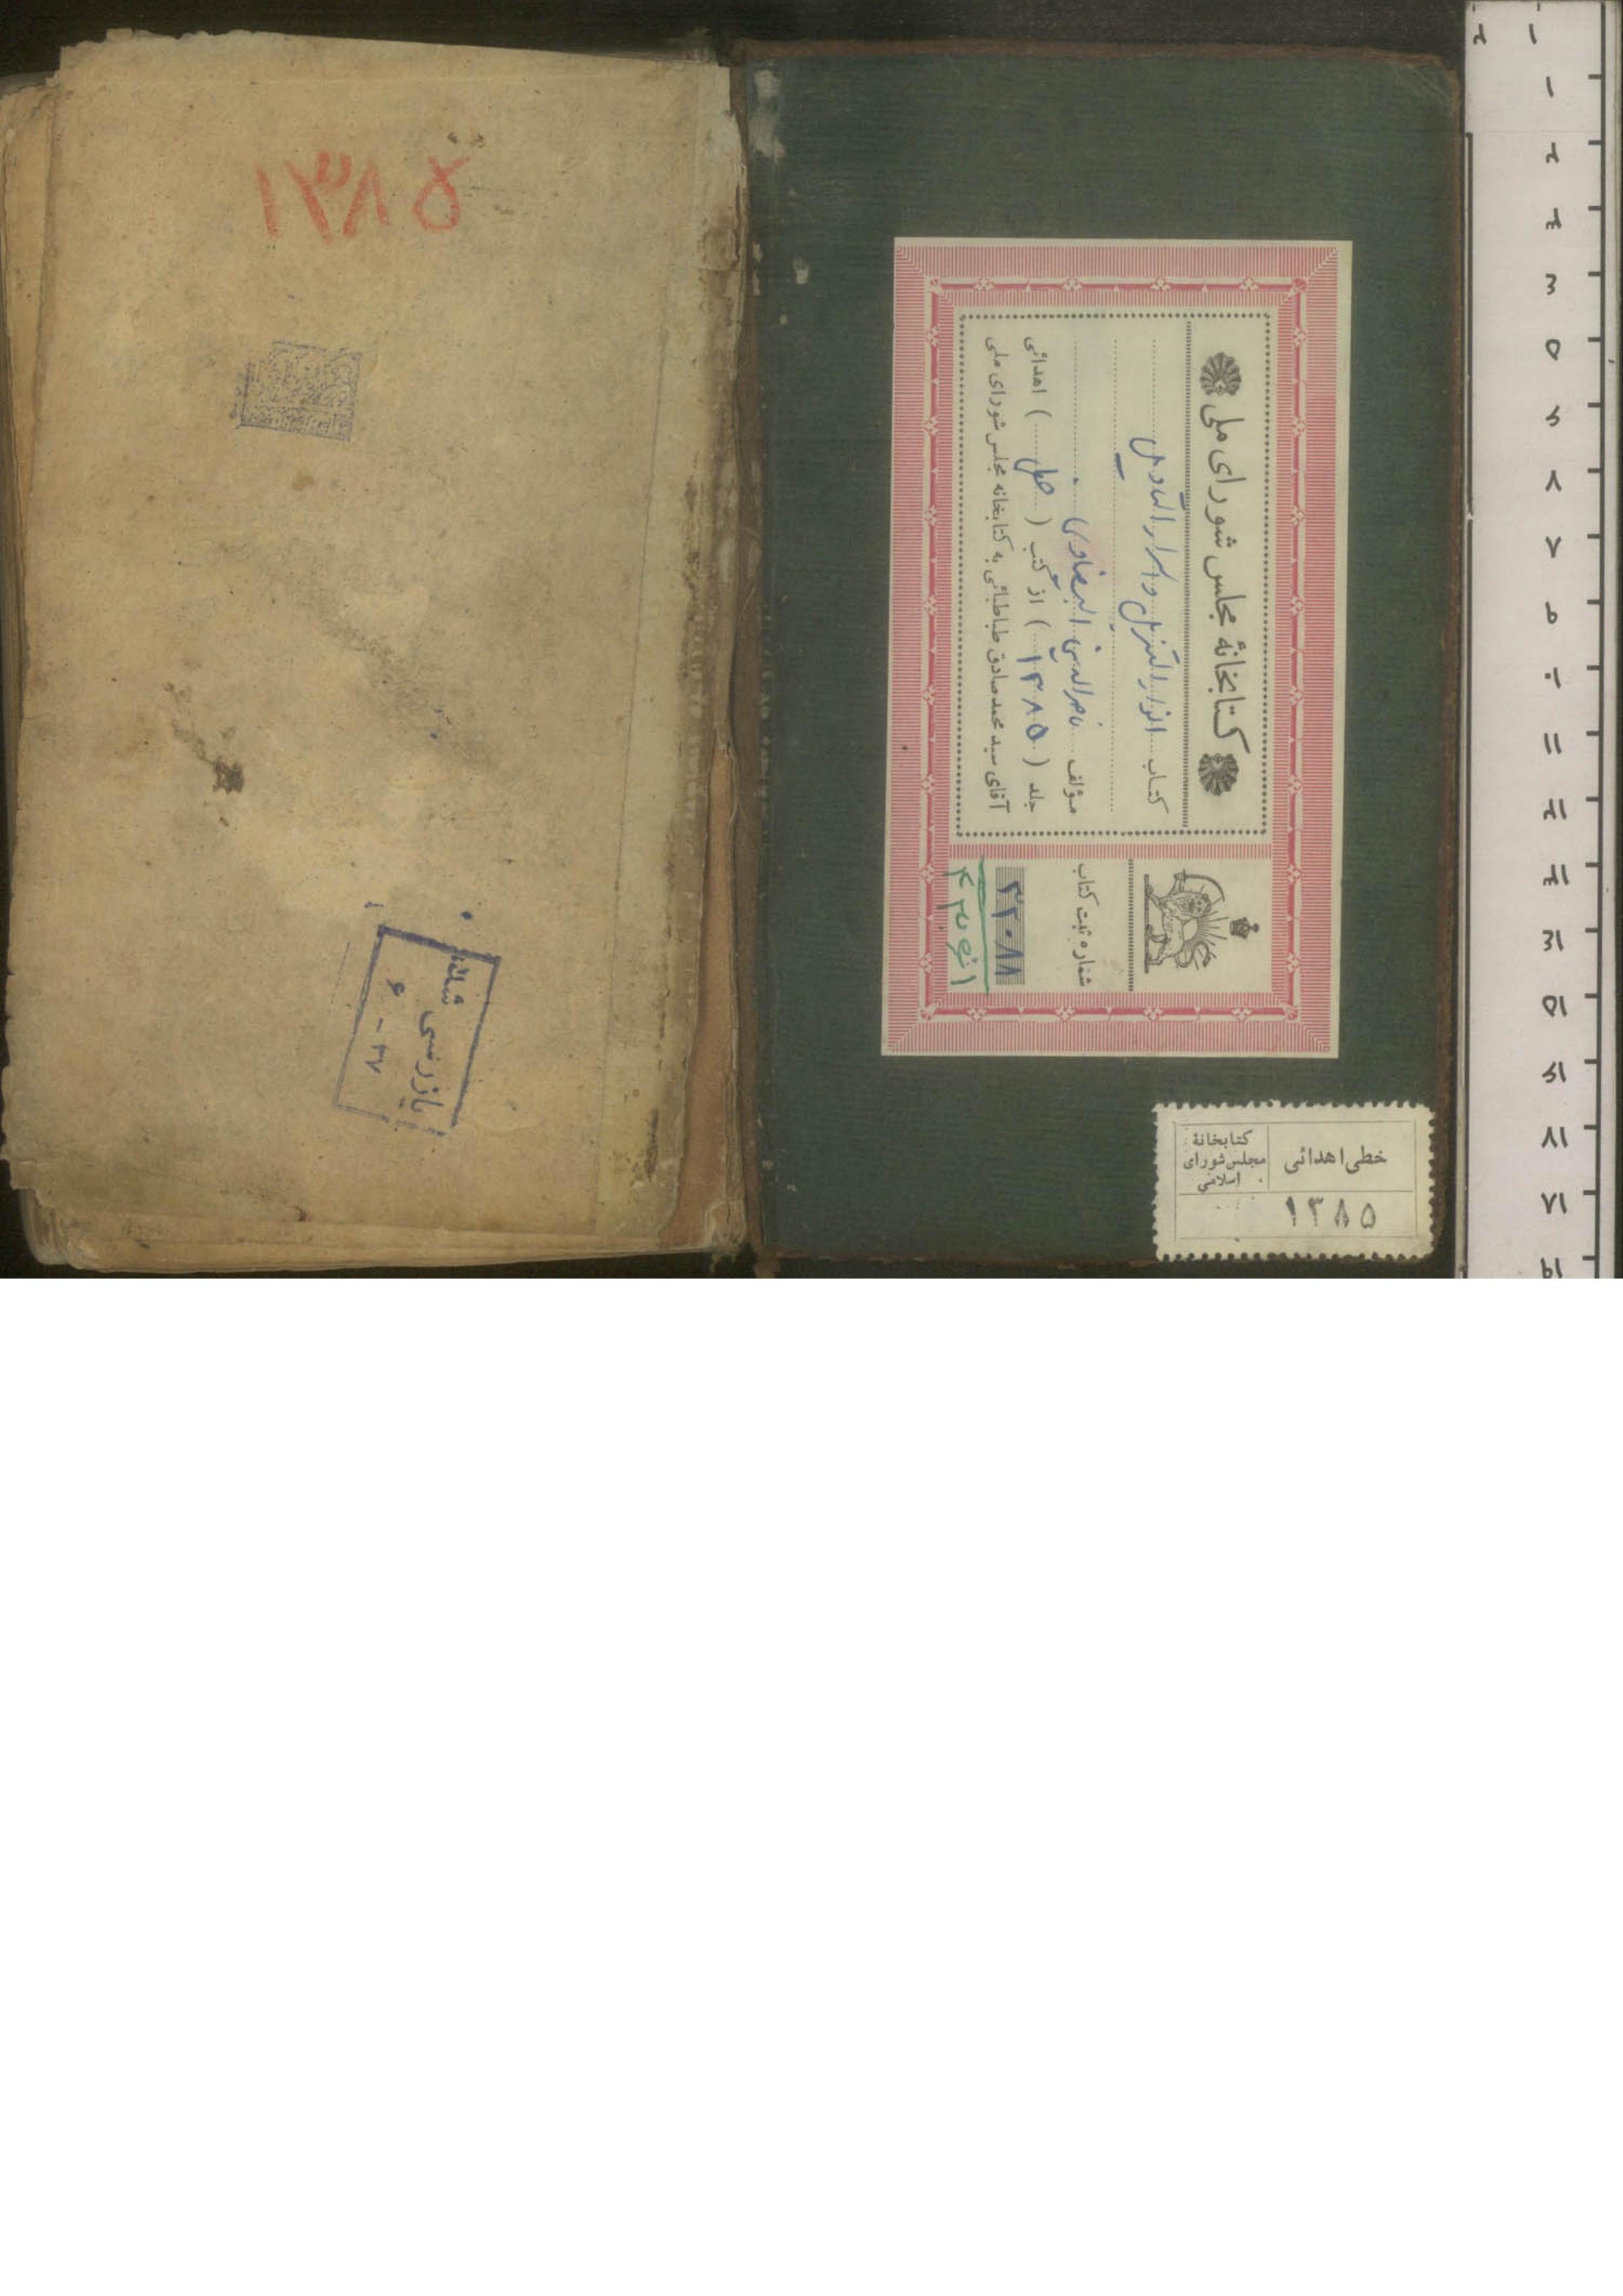 کتابخانهٔ مجلس شورای ملی
کتاب انوار التنزیل و اسرار التأویل
مؤلف ناصر الدین البیضاوی
جلد (۱۳۸۵) از کتب (خطی) اهدائی
آقای سید محمد صادق طباطبائی به کتابخانه مجلس شورای ملی
شماره ثبت کتاب
۳۲۰۸۸
خطی اهدائی
کتابخانهٔ
مجلس شورای
اسلامی
۱۳۸۵
۱۳۸۵
بازرسی شد
۶ - ۳۷
۱
۲
۳
۴
۵
۶
۷
۸
۹
۱۰
۱۱
۱۲
۱۳
۱۴
۱۵
۱۶
۱۷
۱۸
۱۹